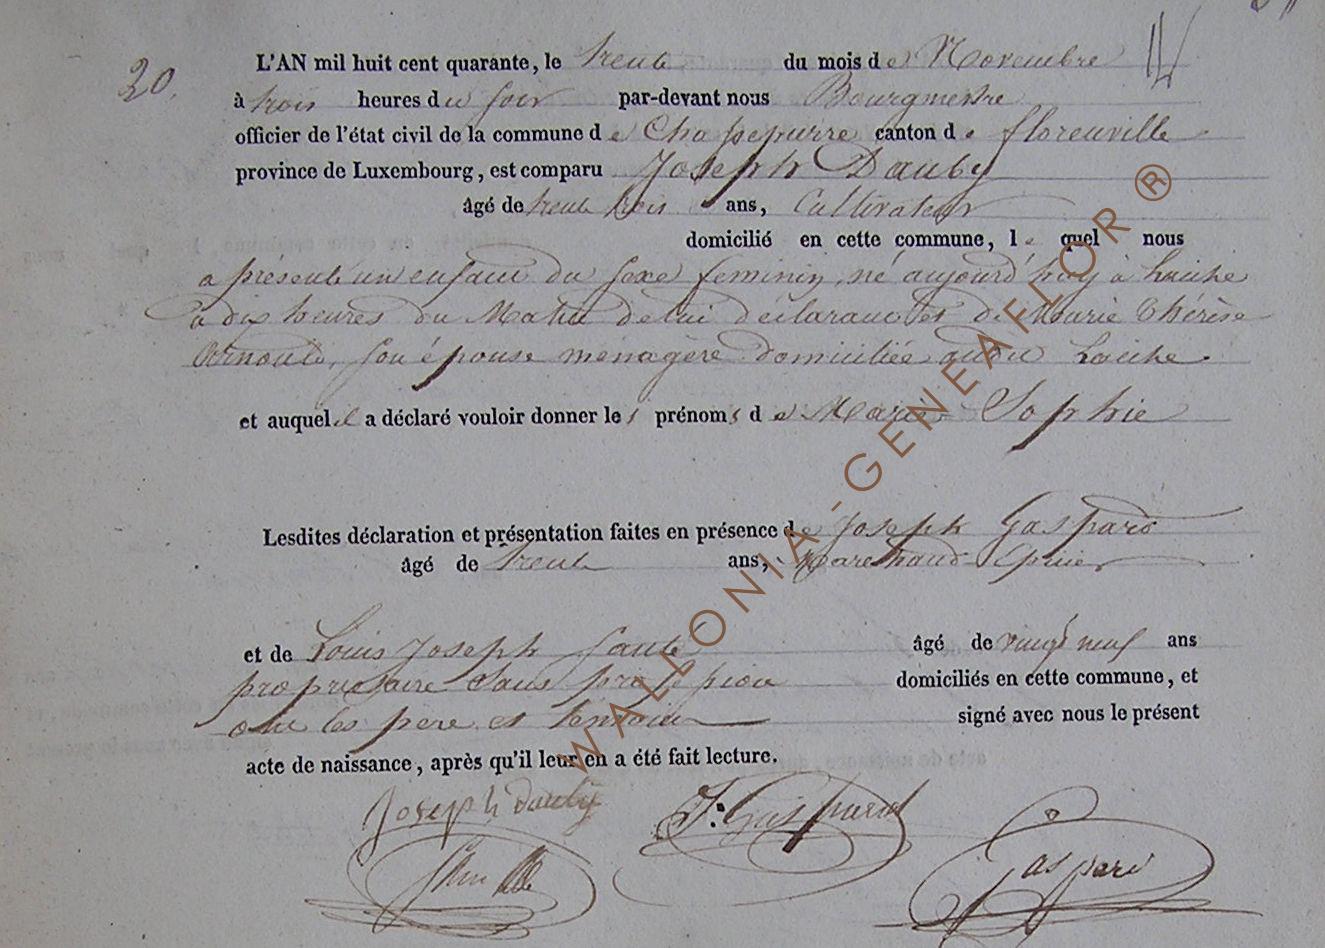 20.
L'AN mil huit cent quarante, le trente du mois de Novembre
à trois heures du soir par-devant nous Bourgmestre
officier de l'état civil de la commune de Chassepierre canton de florenville
province de Luxembourg, est comparu Joseph Dauby
âgé de trente trois ans, Cultivateur
domicilié en cette commune, lequel nous
a présenté un enfant du sexe feminin, né aujourd'huy à Laiche
à dix heures du Matin de lui déclarant et de Marie Thérèse
Arnould, son épouse ménagère domiciliée audit Laiche.
et auquel il a déclaré vouloir donner les prénoms de Marie Sophie
Lesdites déclaration et présentation faites en présence de Joseph Gaspard
âgé de trente ans, Marechand Epicier
et de Louis Joseph âgé de vingt neuf ans
propriétaire Sans profession domiciliés en cette commune, et
ont les pere et temoins signé avec nous le présent
acte de naissance, après qu'il leur en a été fait lecture.
Joseph Dauby J: Gaspard
Gaspard
WALLONIA-GENEAFLOR ®